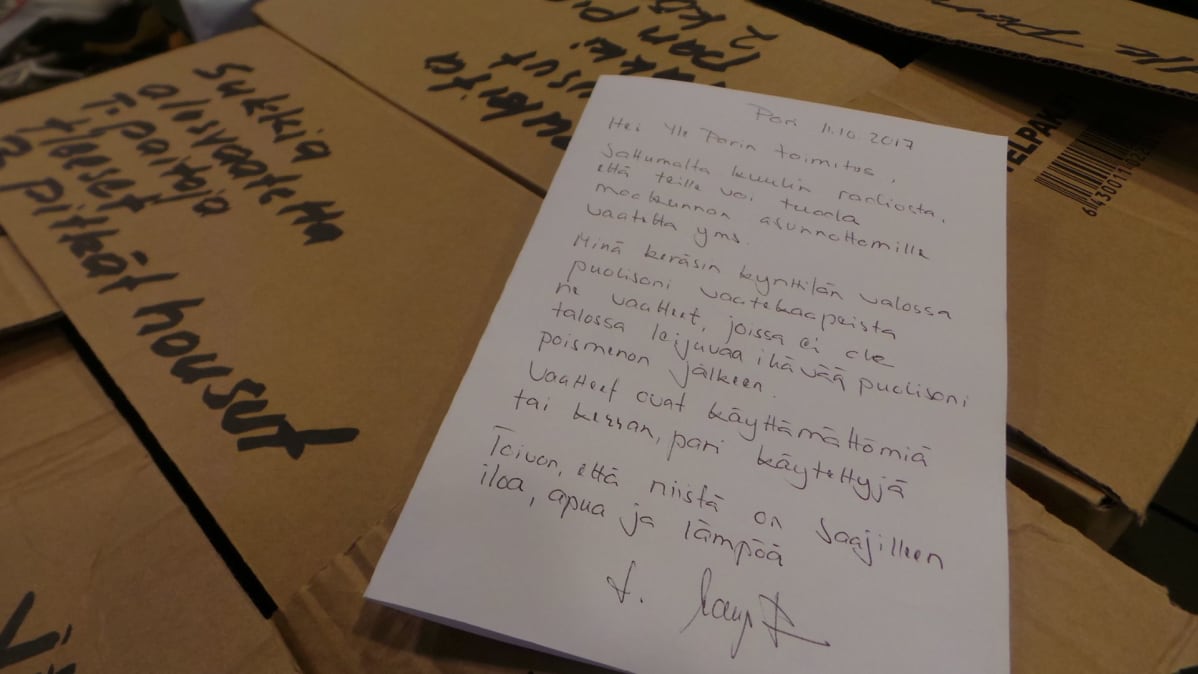 Sukkia
alusvaatetta
T. paitoja
yleeset
2 pitkät housut
2 k
6430011022
Pori 11.10.2017
Hei Yle Porin toimitus,
Sattumalta kuulin radiosta,
että teille voi tuoda
maakunnan asunnottomille
vaatetta yms.
Minä keräsin kynttilän valossa
puolisoni vaatekaapeista
ne vaatteet, joissa ei ole
talossa leijuvaa ikävää puolisoni
poismenon jälkeen.
Vaatteet ovat käyttämättömiä
tai kerran, pari käytettyjä
Toivon, että niistä on saajilleen
iloa, apua ja lämpöä